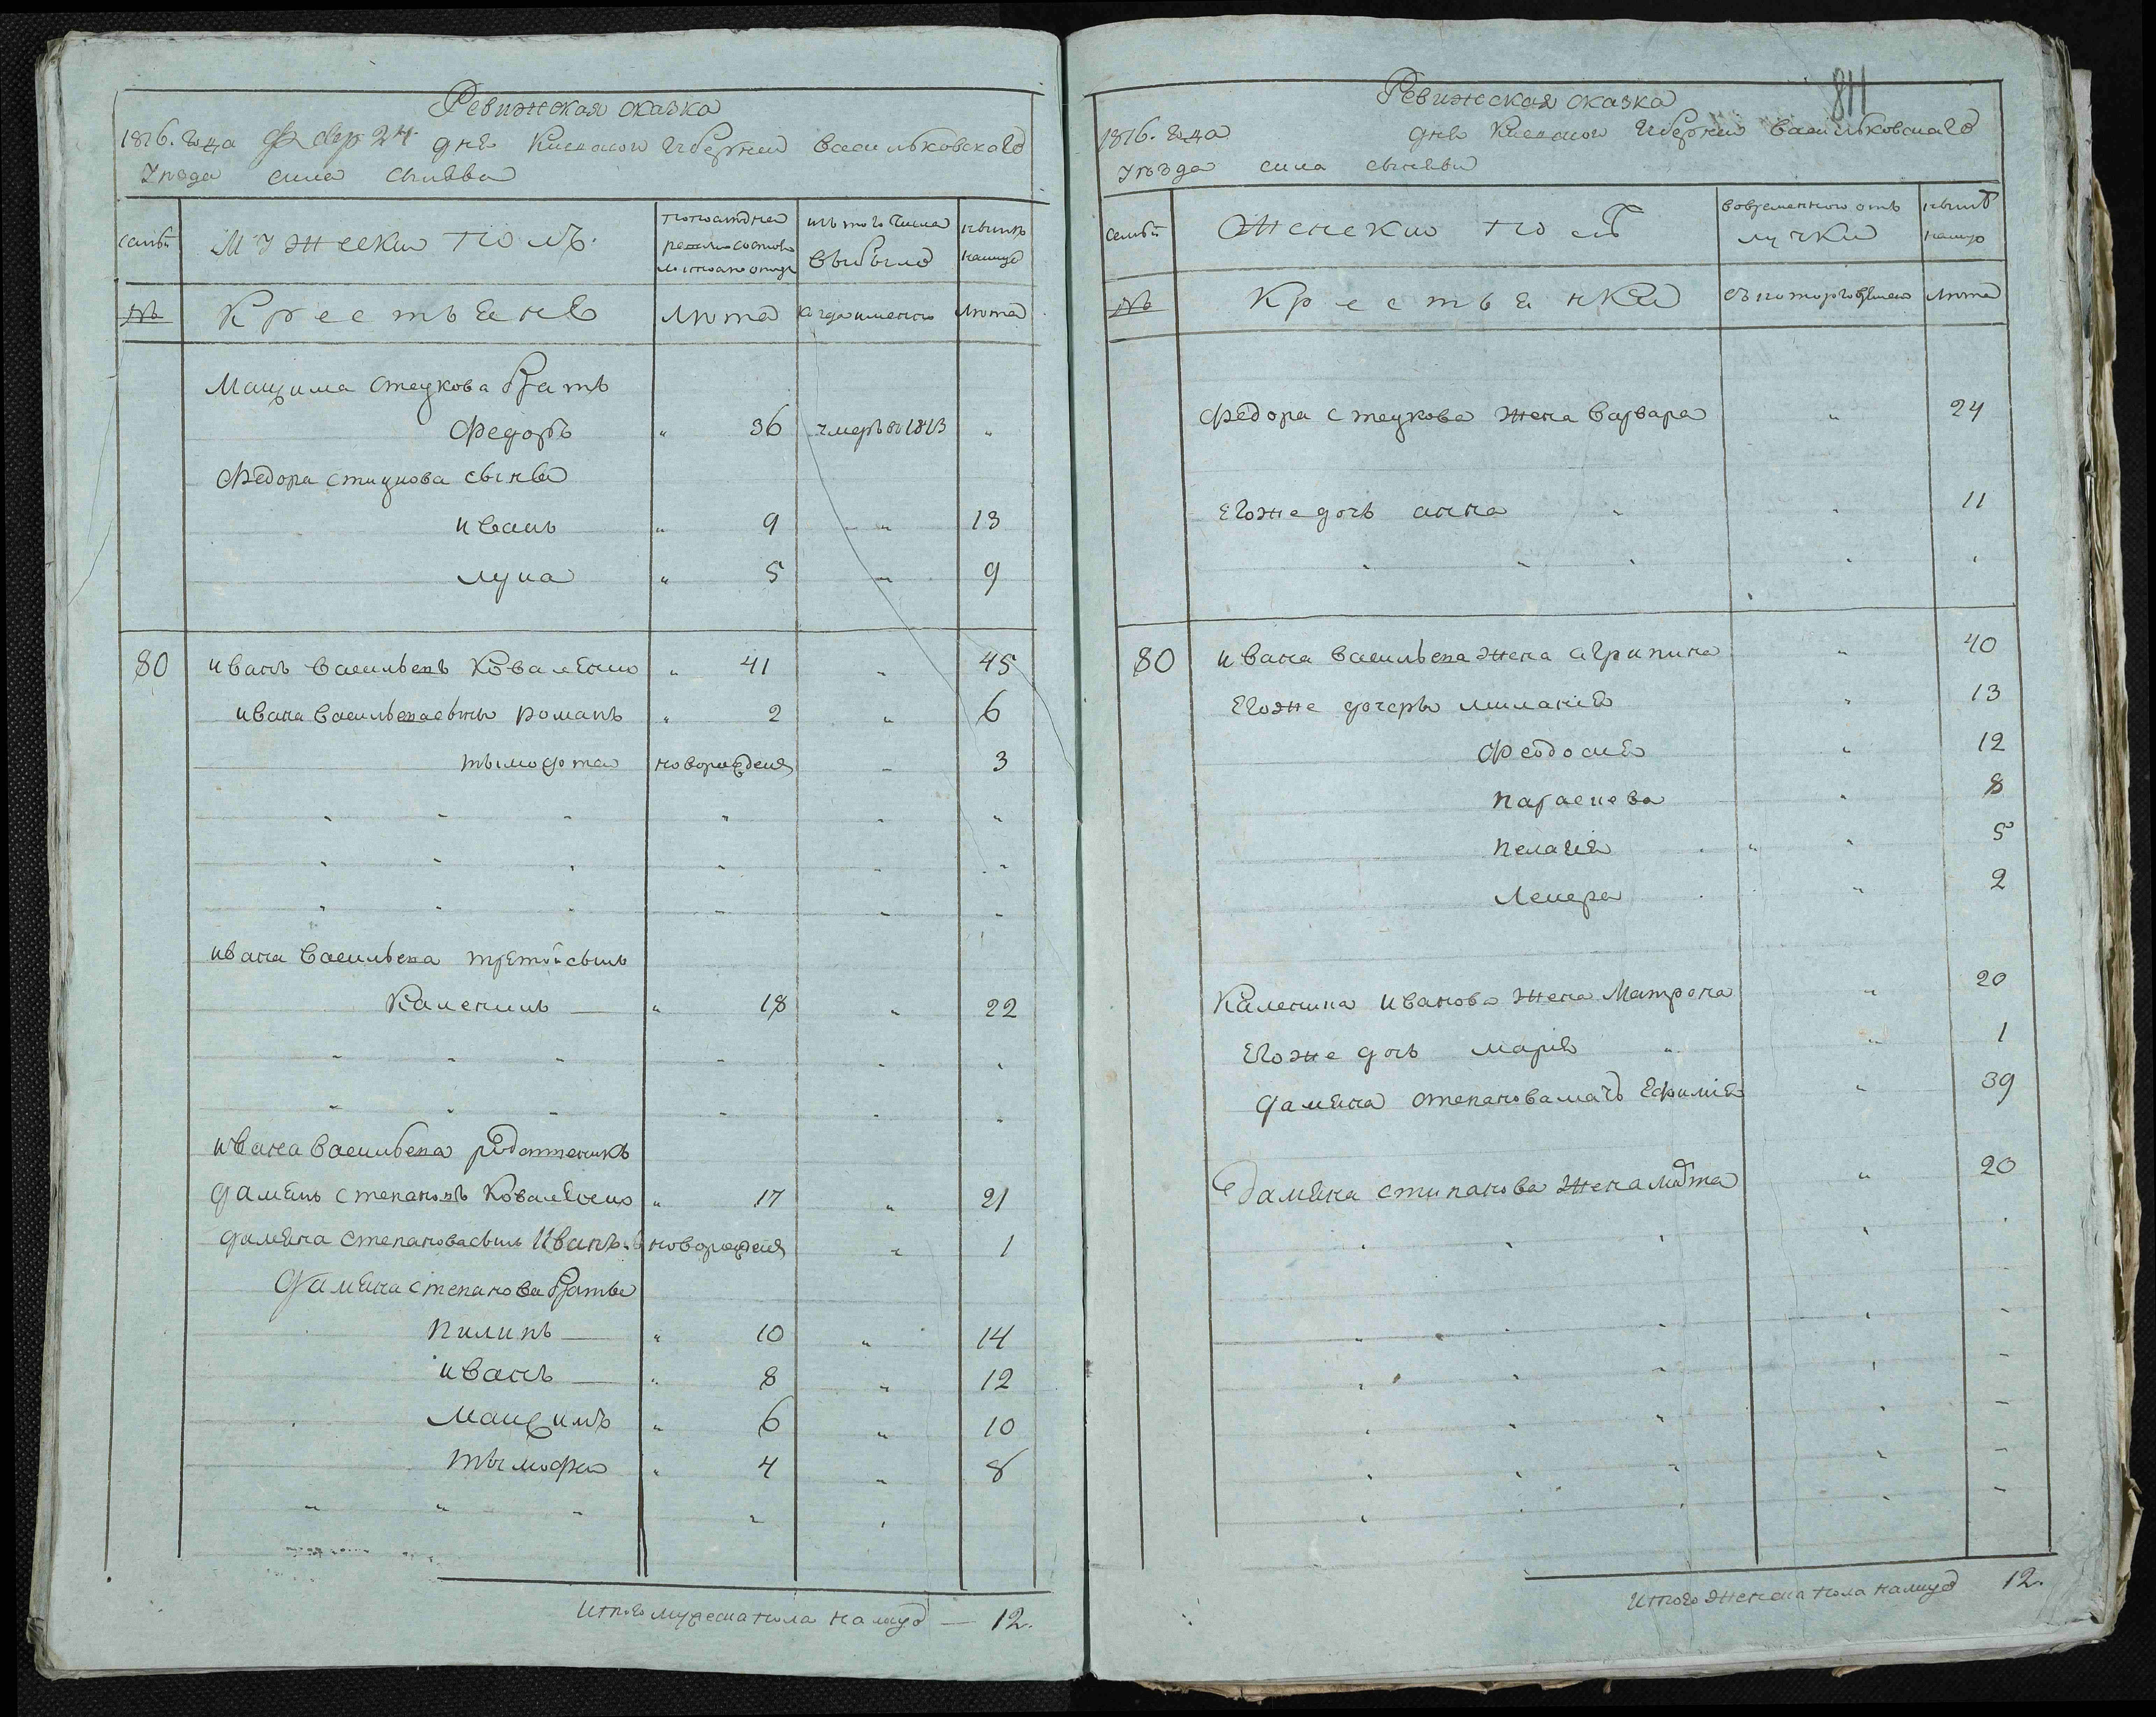 Ревижская сказка
1816. года Февр 24 дня Киевской губернии васильковского
уезда села
семьи
Мужески полъ
изъ того числа
выбыло
ныне
налицо
№
Крестьяне
лета
когда именно
лета
Макзима стецкова братъ
Федоръ " 36 умеръ в 1813 "
Федора стицкова сынъи
иванъ " 9 " 13
лука " 5 " 9
80 иванъ васильевъ коваленко " 41 " 45
ивана васильева сынъ романъ " 2 " 6
тымофта новорожденя " 3
ивана васильева третой сынъ
каленикъ — " 18 " 22
ивана васильева
дамянъ степановъ коваленко " 17 " 21
дамяна степанова сынъ иванъ новорожденя " 1
дамяна степанова братьи
пилипъ — " 10 " 14
иванъ — " 8 " 12
макзимъ " 6 " 10
тымофи " 4 " 8
итого мужеска пола налицо — 12.
811
Ревижская сказка
1816. года дня Киевской губернии васильковскаго
уезда села
семьи
Женски полъ
во временной отъ
лучки
ныне
налицо
№
Крестьянки
съ которого времени
лета
Федора стецкова жена варвара " 24
его же дочь анна " 11
80 ивана васильева жена агрипина " 40
его же дочеры миланія " 13
Феодосия " 12
параскева " 8
пелагия " 5
2
каленика иванова жена матрона " 20
его же дочь марія " 1
дамяна степанова мачь ефимія " 39
дамяна стипанова жена " 20
итого женска пола налицо 12.